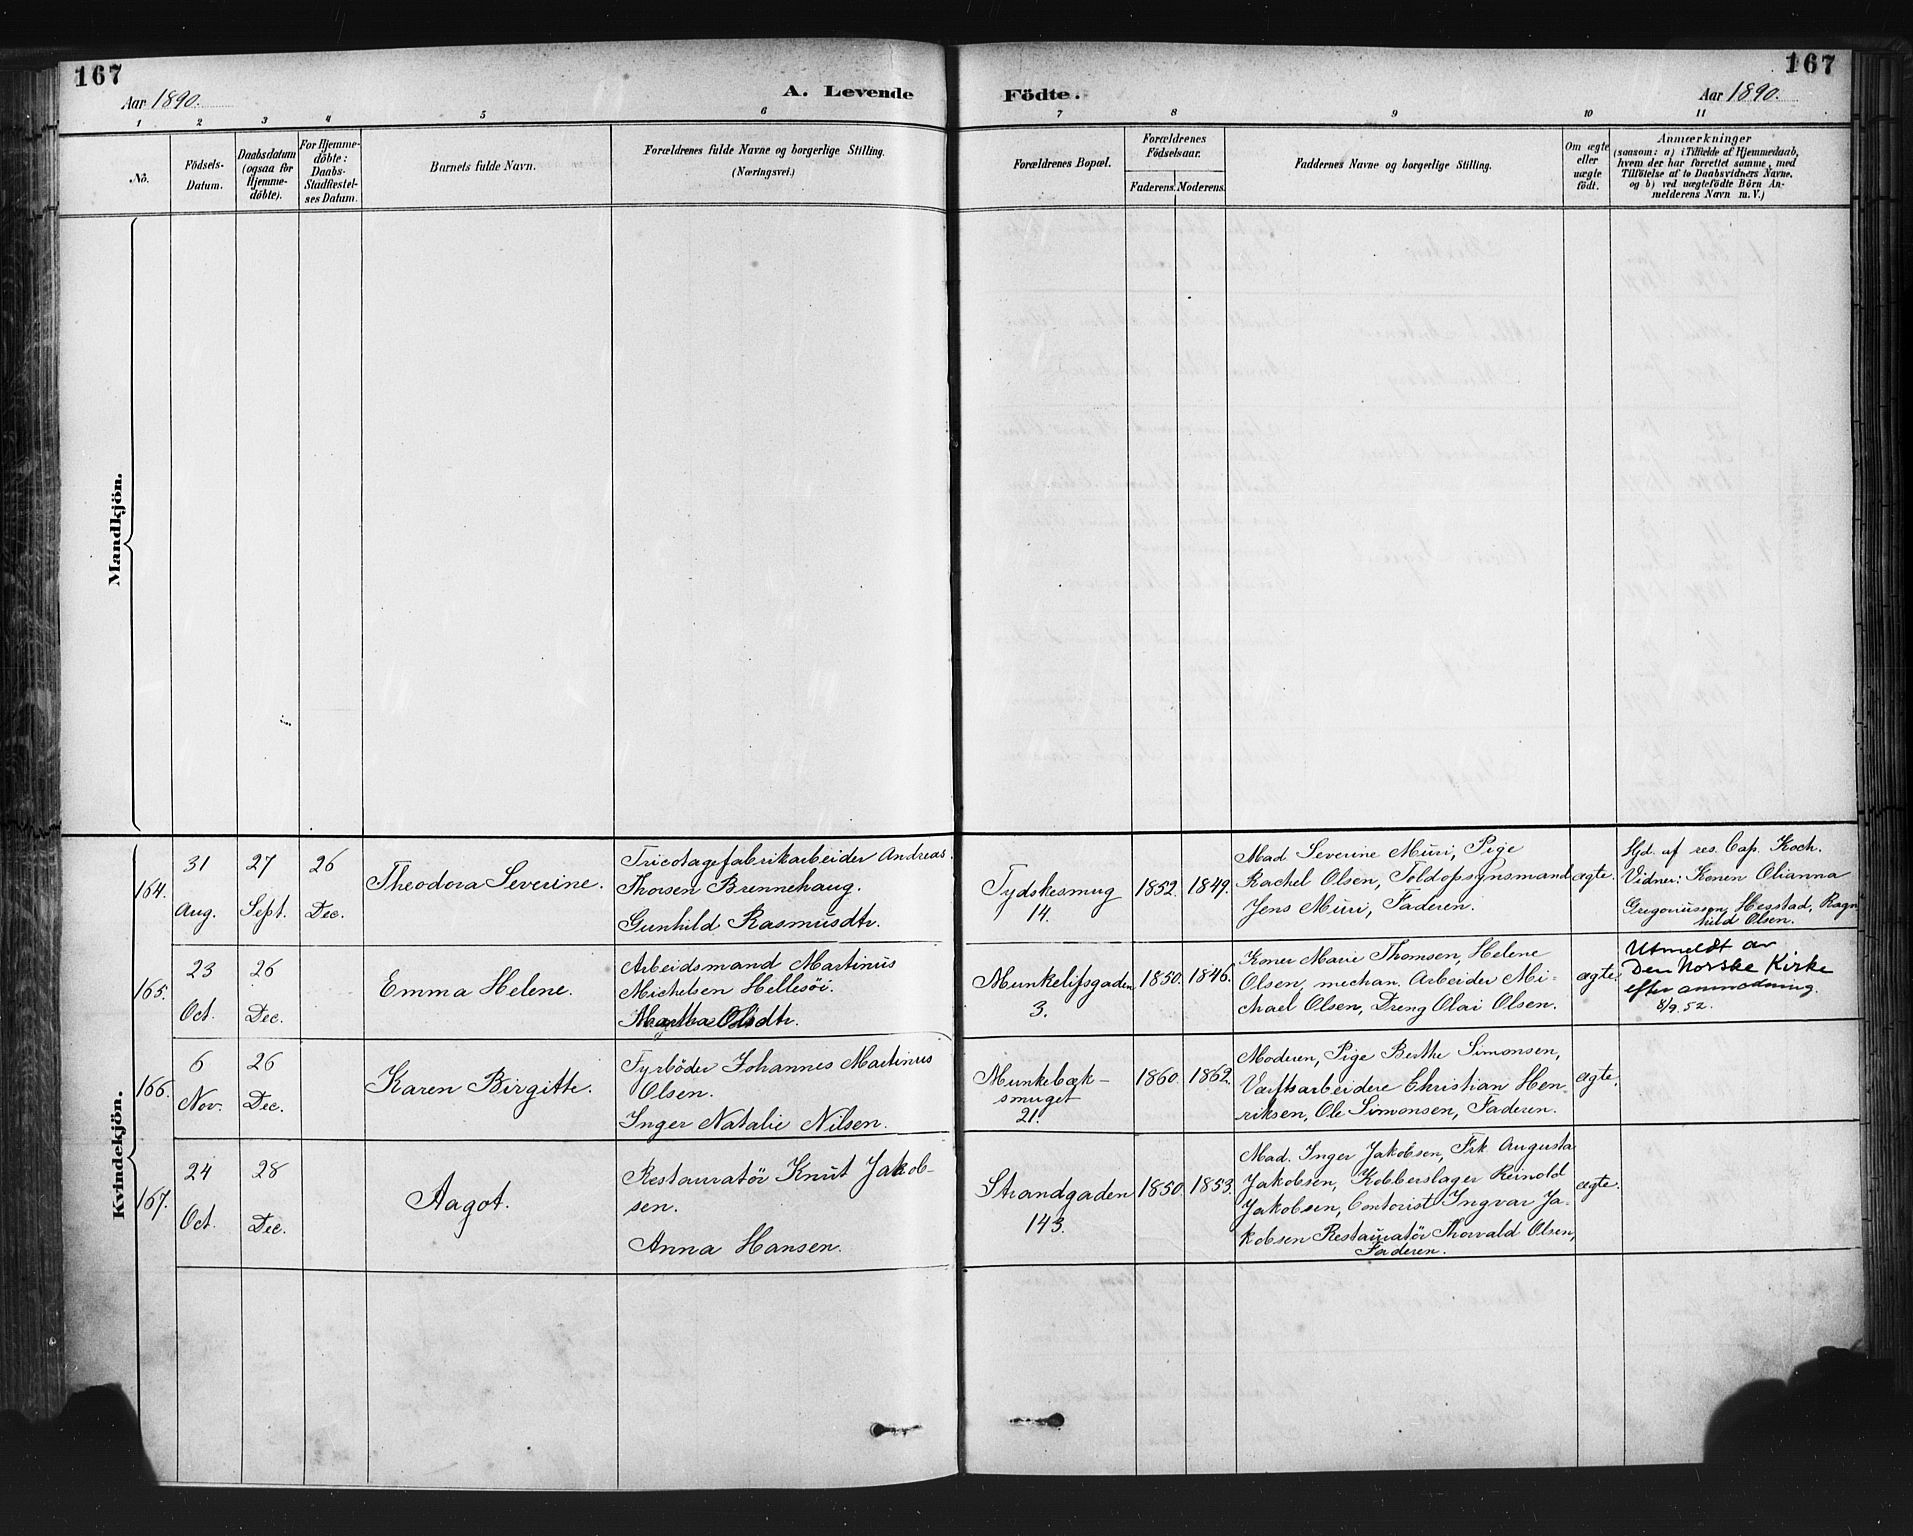 167
167
Aar 1890.
A. Levende
Födte.
Aar 1890.
1 2 3 4 5 6 7 8 9 10 11
No.
Födsels-
Datum.
Daabsdatum
(ogsaa for
Hjemme-
döbte).
For Hjemme-
döbte:
Daabs-
Stadfæstel-
ses Datum.
Barnets fulde Navn.
Forældrenes fulde Navne og borgerlige Stilling.
(Næringsvei.)
Forældrenes Bopæl.
Forældrenes
Födselsaar.
Faderens. Moderens.
Faddernes Navne og borgerlige Stilling.
Om ægte
eller
uægte
födt.
Anmærkninger
(saasom: a) i Tilfælde af Hjemmedaab,
hvem der har forrettet samme, med
Tilföielse af to Daabsvidners Navne,
og b) ved uægtefödte Börn An-
melderens Navn m. V.)
Mandkjön.
Kvindekjön.
164.
31
Aug.
27
Sept.
26
Dec.
Theodora Severine.
Tricotagefabrikarbeider Andreas
Thorsen Brennehaug.
Gunhild Rasmusdtr.
Tydskesmug
14.
1852. 1849.
Mad Severine Muri, Pige
Rachel Olsen, Toldopsynsmand
Jens Muri, Faderen.
ægte.
Hjd. af res. Cap. Koch.
Vidner: Konen Olianna
Gregoriussen Hesstad, Ragn-
hild Olsen.
165.
23
Oct.
26
Dec.
Emma Helene.
Arbeidsmand Martinus
Michelsen Hellesöi.
Martha Olsdtr.
Munkelifsgaden
3.
1850. 1846.
Koner Marie Thomsen, Helene
Olsen, mechan. Arbeider Mi-
chael Olsen, Dreng Olai Olsen.
ægte.
Utmeldt av
Den Norske Kirke
efter anmodning.
8/9. 52.
166.
6
Nov.
26
Dec.
Karen Birgitte.
Fyrböder Johannes Martinus
Olsen.
Inger Natalie Nilsen.
Munkebæk-
smuget
21.
1860. 1862.
Moderen, Pige Berthe Simonsen,
Værftsarbeidere Christian Hen-
riksen, Ole Simonsen, Faderen.
ægte.
167.
24
Oct.
28
Dec.
Aagot.
Restauratör Knut Jakob-
sen.
Anna Hansen.
Strandgaden
143.
1850. 1853.
Mad. Inger Jakobsen, Frk Augusta
Jakobsen, Kobberslager Reinold
Jakobsen, Contorist Ingvar Ja-
kobsen Restauratör Thorvald Olsen,
Faderen.
ægte.